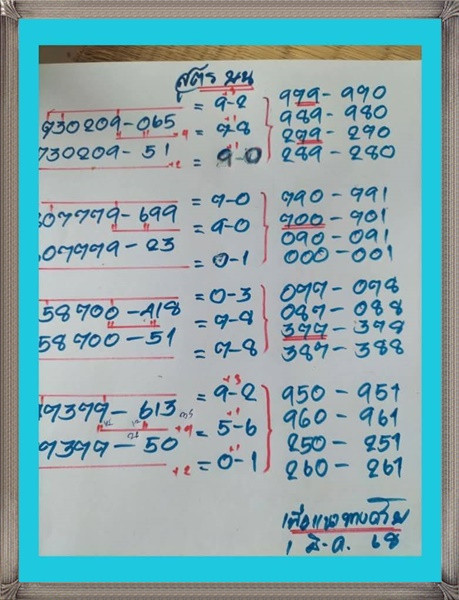 สูตร บน
730209-065 = 9-2 979-970
730209-51 = 7-8 989-980
= 9-0 279-270
289-280
07779-699 = 7-0 790-791
07779-23 = 9-0 700-701
= 0-1 090-091
000-001
58700-418 = 0-3 077-078
58700-51 = 7-8 087-088
= 7-8 377-378
387-388
47377-613 = 9-2 950-951
7377-50 = 5-6 960-961
= 0-1 250-251
260-261
เพื่อแนวทาง
1 มี.ค. 68